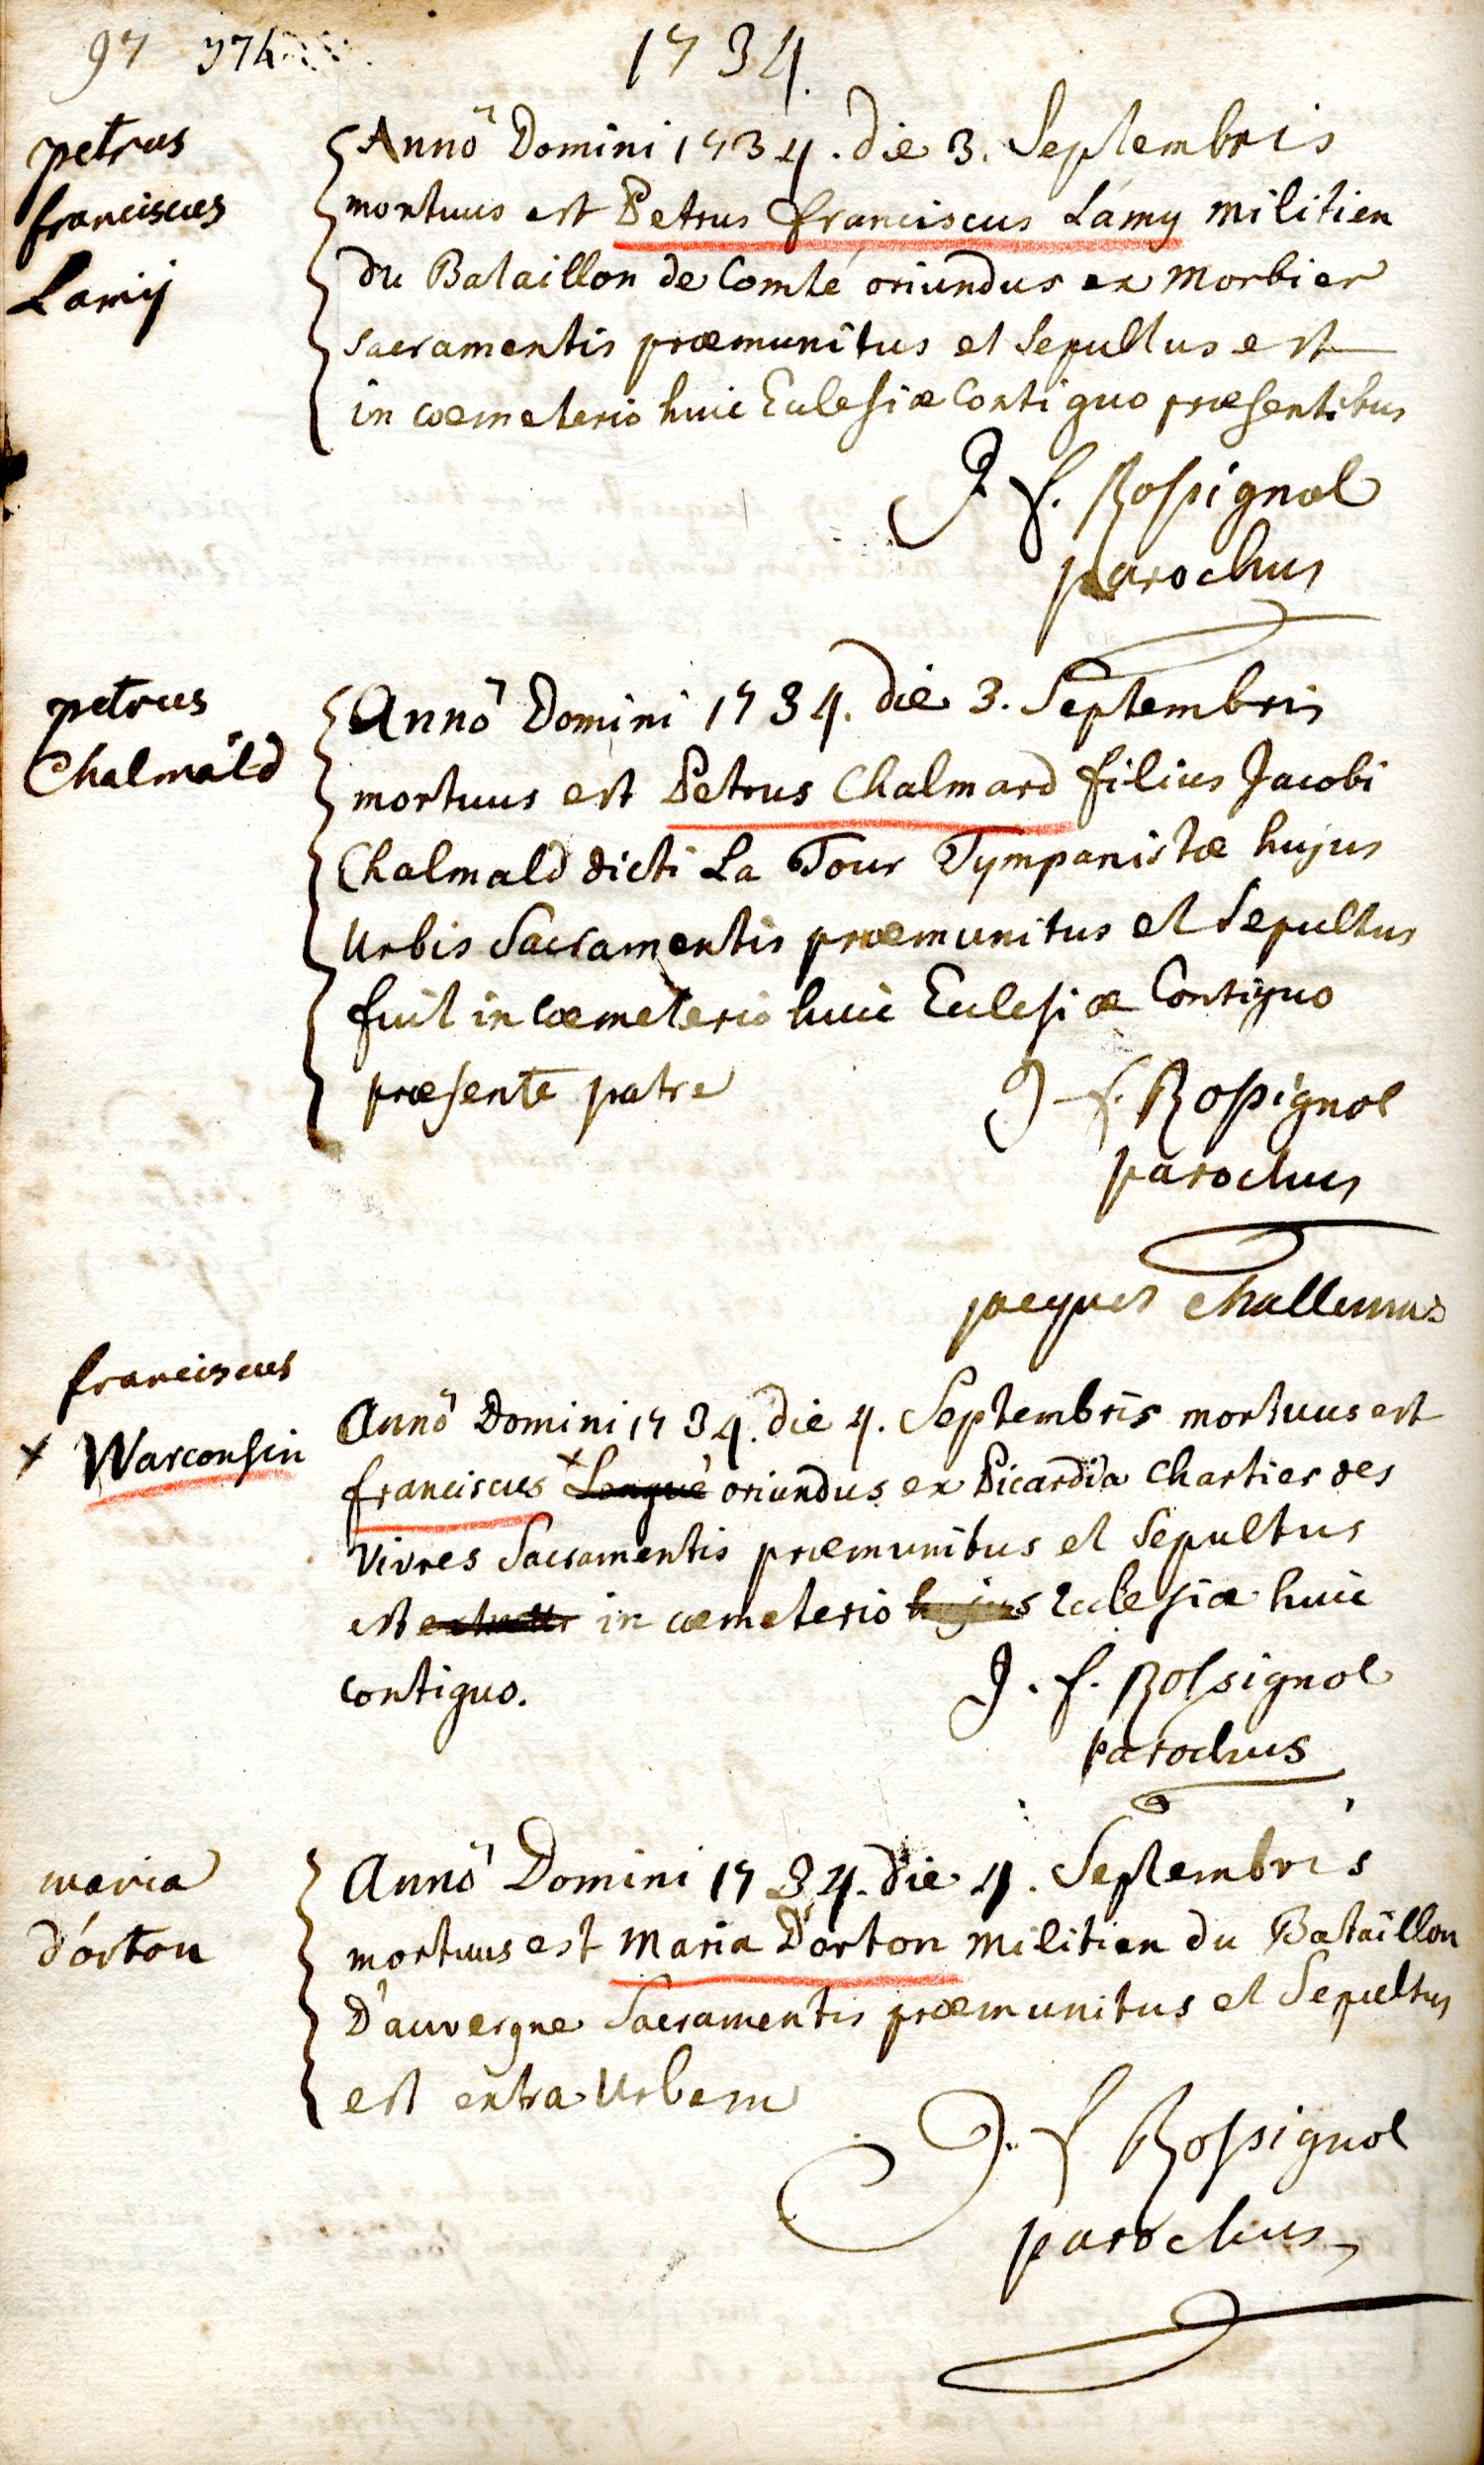 97 374
1734.
petrus
franciscus
Lamij
Annô Domini 1734. die 3. Septembris
mortuus est Petrus franciscus Lamy militien
du Bataillon de Comté oriundus ex Morbier
sacramentis præmunitus et Sepultus est
in coemeterio huic Eclesiæ Contiguo præsentibus
J f. Rossignol
parochus
petrus
Chalmald
Annô Domini 1734. die 3. Septembris
mortuus est Petrus Chalmard filius Jacobi
Chalmald dicti La Tour Tympanistæ hujus
Urbis Sacramentis præmunitus et Sepultus
fuit in Coemeterio huic Eclesiæ Contiguo
præsente patre
J f. Rossignol
parochus
jacques
franciscus
x Warconsin
Annô Domini 1734. die 4. Septembris mortuus est
franciscus x Longué oriundus ex Picardia Chartier des
Vivres Sacramentis præmunibus et Sepultus
est in coemeterio hujus Eclesiæ huic
contiguo.
J. f. Rossignol
parochus
maria
d'orton
Annô Domini 1734. die 4. Septembris
mortuus est Maria D'orton militien du Bataillon
D'auvergne Sacramentis præmunitus et Sepultus
est extra Urbem
J. f Rossignol
parochus